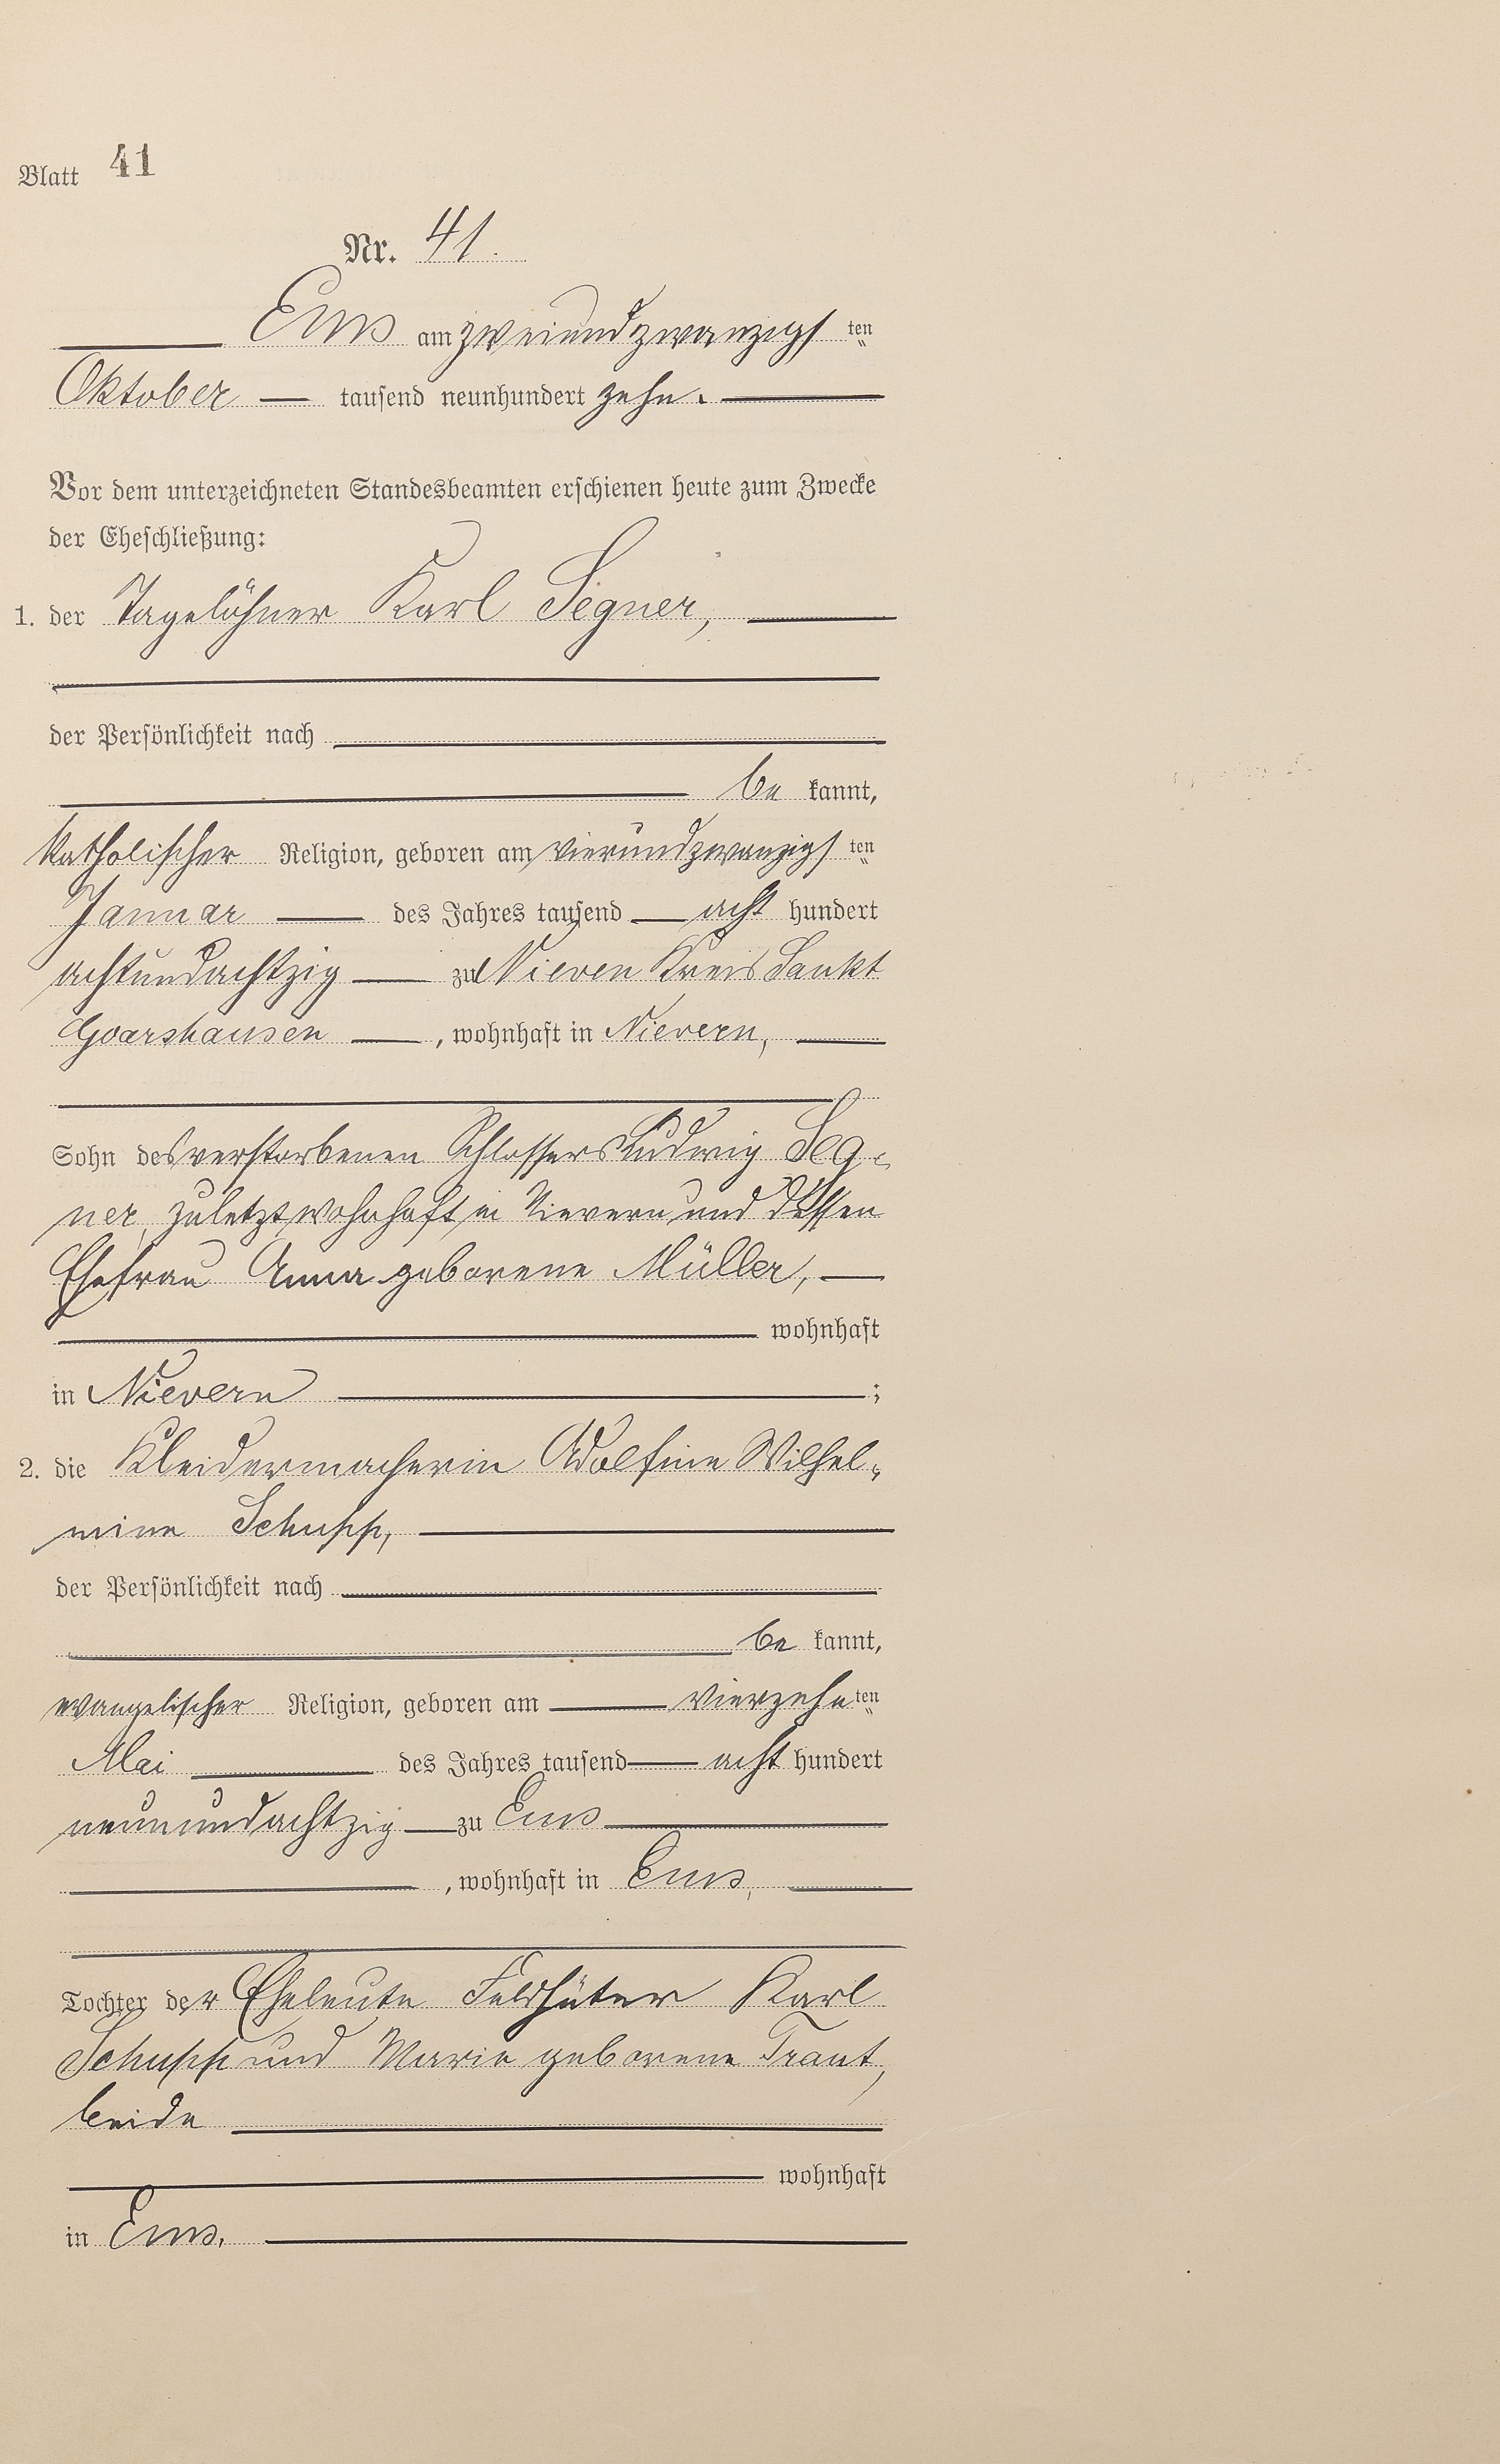 Blatt 41
Nr. 41.
Ems am zweiundzwanzigsten
Oktober tausend neunhundert zehn.
Vor dem unterzeichneten Standesbeamten erschienen heute zum Zwecke
der Eheschließung:
1. der Tagelöhner Karl Segner,
der Persönlichkeit nach
be kannt,
katholischer Religion, geboren am vierundzwanzigsten
Januar des Jahres tausend acht hundert
achtundachtzig zu Nievern Kreis Sankt
Goarshausen, wohnhaft in Nievern,
Sohn des verstorbenen Schlossers Ludwig Seg-
ner, zuletzt wohnhaft in Nievern und dessen
Ehefrau Anna geborene Müller,
wohnhaft
in Nievern;
2. die Kleidermacherin Adolfine Wilhel-
mine Schupp,
der Persönlichkeit nach
be kannt,
evangelischer Religion, geboren am vierzehnten
Mai des Jahres tausend acht hundert
neunundachtzig zu Ems
, wohnhaft in Ems,
Tochter der Eheleute Feldhüter Karl
Schupp und Marie geborene Traut,
beide
wohnhaft
in Ems.